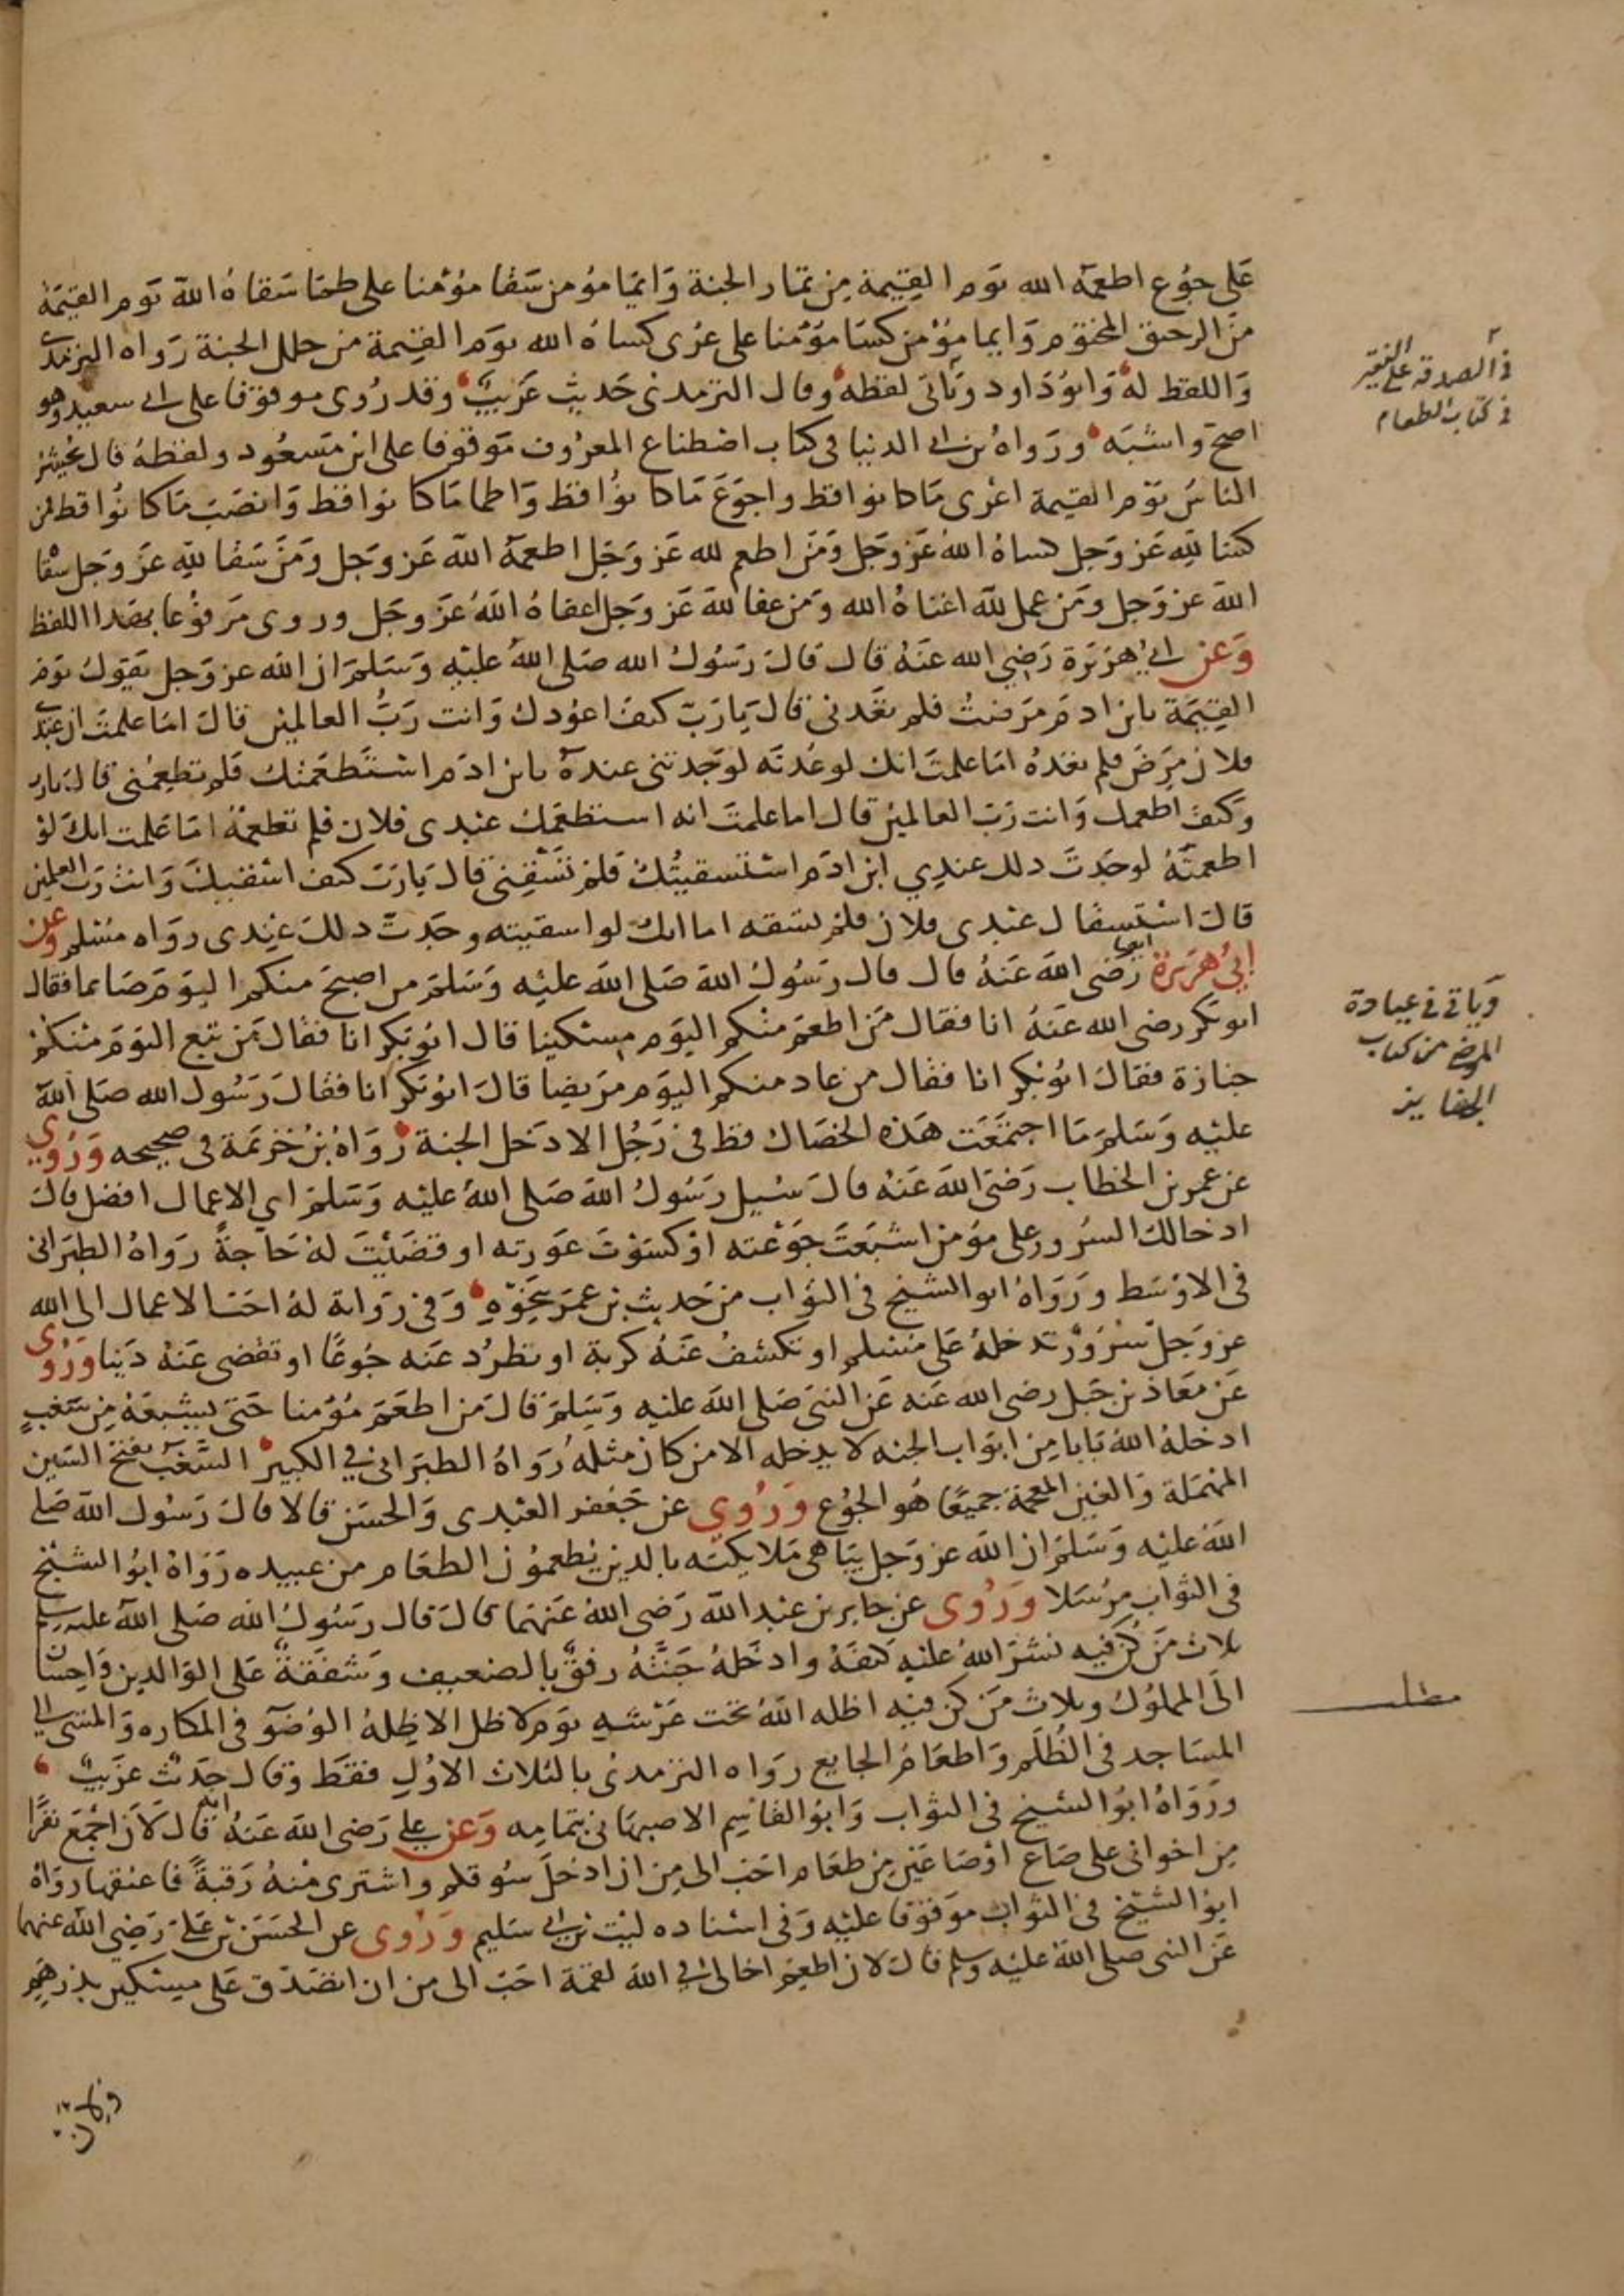 على جوع اطعمه الله يوم القيمة من ثمار الجنة وايما مؤمن سقا مؤمنا على ظما سقاه الله يوم القيمة
من الرحيق المختوم وايما مؤمن كسا مؤمنا على عرى كساه الله يوم القيمة من حلل الجنة رواه الترمذي
واللفظ له وابو داود ويأتي لفظه وقال الترمذي حديث غريب وقد روى موقوفا على ابي سعيد وهو
اصح واشبه ورواه بن ابي الدنيا في كتاب اصطناع المعروف موقوفا على ابن مسعود ولفظه قال يحشر
الناس يوم القيمة اعرى ما كانوا قط واجوع ما كانوا قط واظما ما كانوا قط وانصب ما كانوا قط فمن
كسا لله عز وجل كساه الله عز وجل ومن اطعم لله عز وجل اطعمه الله عز وجل ومن سقا لله عز وجل سقاه
الله عز وجل ومن عمل لله اغناه الله ومن عفا لله عز وجل اعفاه الله عز وجل وروى مرفوعا بهذا اللفظ
وعن ابي هريرة رضي الله عنه قال قال رسول الله صلى الله عليه وسلم ان الله عز وجل يقول يوم
القيمة يابن ادم مرضت فلم تعدني قال يارب كيف اعودك وانت رب العالمين قال اما علمت ان عبدي
فلان مرض فلم تعده اما علمت انك لو عدته لوجدتني عنده يابن ادم استطعمتك فلم تطعمني قال يارب
وكيف اطعمك وانت رب العالمين قال اما علمت انه استطعمك عبدى فلان فلم تطعمه اما علمت انك لو
اطعمته لوجدت ذلك عندي ابن ادم استسقيتك فلم تسقني قال يارب كيف اسقيك وانت رب العلمين
قال استسقاك عبدى فلان فلم تسقه اما انك لو اسقيته وجدت ذلك عندى رواه مسلم وعن
ابي هريرة ايضا رضى الله عنه قال قال رسول الله صلى الله عليه وسلم من اصبح منكم اليوم صائما فقال
ابو بكر رضى الله عنه انا فقال من اطعم منكم اليوم مسكينا قال ابو بكر انا فقال من تبع اليوم منكم
جنازة فقال ابو بكر انا فقال من عاد منكم اليوم مريضا قال ابو بكر انا فقال رسول الله صلى الله
عليه وسلم ما اجتمعت هذه الخصال قط في رجل الا دخل الجنة رواه بن خزيمة في صحيحه وروي
عن عمر بن الخطاب رضى الله عنه قال سئيل رسول الله صلى الله عليه وسلم اي الاعمال افضل قال
ادخالك السرور على مؤمن اشبعت جوعته او كسوت عورته او قضيت له حاجة رواه الطبراني
في الاوسط ورواه ابو الشيخ في الثواب من حديث بن عمر بنحوه وفي رواية له احب الاعمال الى الله
عز وجل سرور تدخله على مسلم او تكشف عنه كربة او تطرد عنه جوعا او تقضى عنه دينا وروى
عن معاذ بن جبل رضى الله عنه عن النبى صلى الله عليه وسلم قال من اطعم مؤمنا حتى يشبعه من سغب
ادخله الله بابا من ابواب الجنه لا يدخله الا من كان مثله رواه الطبراني في الكبير السغب بفتح السين
المهملة والغين المعجمة جميعا هو الجوع وروي عن جعفر العبدى والحسن قالا قال رسول الله صلى
الله عليه وسلم ان الله عز وجل يباهى ملايكته بالذين يطعمون الطعام من عبيده رواه ابو الشيخ
في الثواب مرسلا وروى عن جابر بن عبد الله رضى الله عنهما قال قال رسول الله صلى الله عليه وسلم
ثلاث من كن فيه نشر الله عليه كنفه وادخله جنته رفق بالضعيف وشفقة على الوالدين واحسان
الى المملوك وثلاث من كن فيه اظله الله تحت عرشه يوم لا ظل الا ظله الوضو في المكاره والمشى الى
المساجد في الظلم واطعام الجايع رواه الترمذى بالثلاث الاول فقط وقال حديث غريب
ورواه ابو الشيخ في الثواب وابو القاسم الاصبهاني بتمامه وعن علي رضى الله عنه انه قال لان اجمع نفرا
من اخواني على صاع او صاعين من طعام احب الى من ان ادخل سوقكم واشترى منه رقبة فاعتقها رواه
ابو الشيخ في الثواب موقوفا عليه وفى اسناده ليث بن ابي سليم وروى عن الحسن بن علي رضي الله عنهما
عن النبى صلى الله عليه وسلم قال لان اطعم اخا لى في الله لقمة احب الى من ان اتصدق على مسكين بدرهم
في الصدقة على الفقير
في كتاب الطعام
ويأتي في عيادة
المريض من كتاب
الجنايز
مطلب